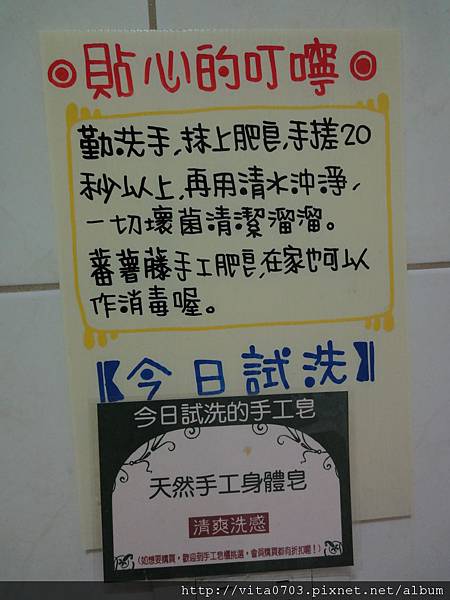 貼心的叮嚀
勤洗手,抹上肥皂,手搓20
秒以上,再用清水沖淨,
一切壞菌清潔溜溜。
蕃薯藤手工肥皂,在家也可以
作消毒喔。
【今日試洗】
今日試洗的手工皂
天然手工身體皂
清爽洗感
(如想要購買,歡迎到手工皂櫃挑選,會員購買都有折扣喔!)
http://vita0703.pixnet.net/album